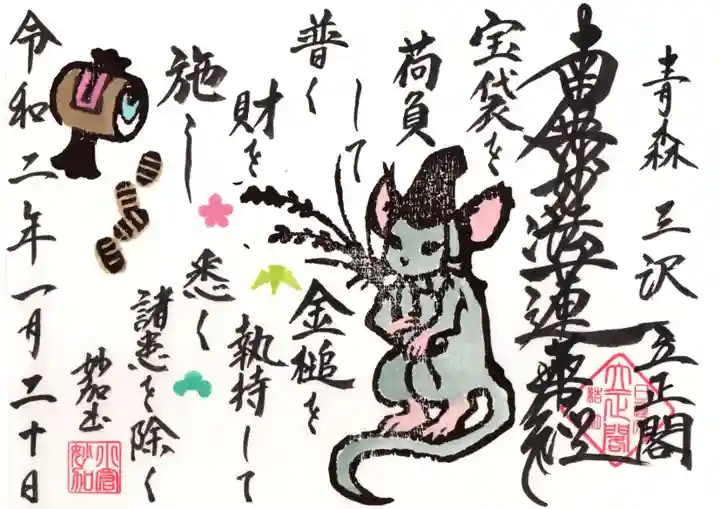 青森 三沢 立正閣
南無妙法蓮華経
宝袋を
荷負
して
普く
財を
施し
金槌を
執持して
悉く
諸患を除く
妙加書
令和二年一月二十日
立正閣
小倉
妙加